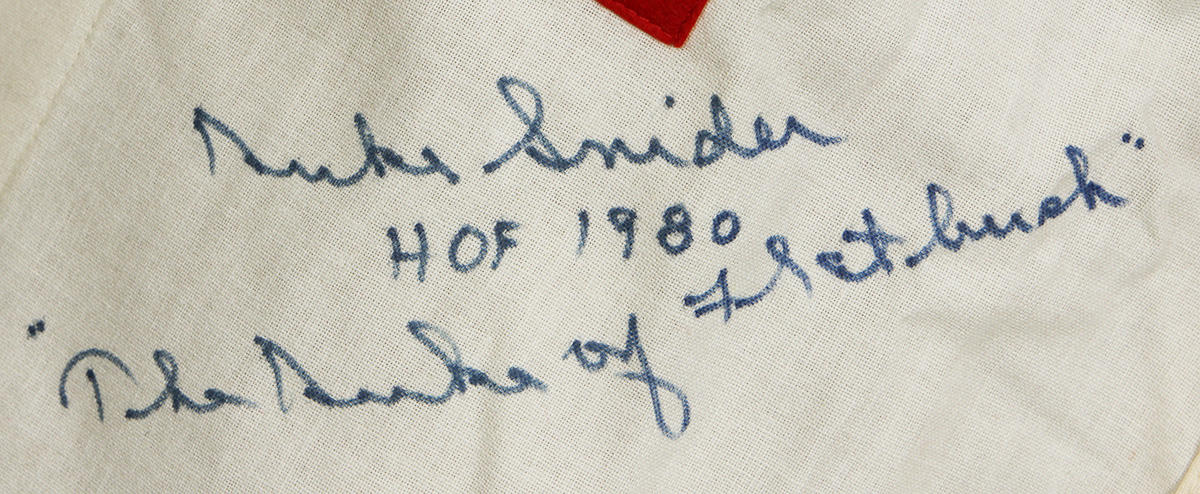 Duke Snider
HOF 1980
"The Duke of Flatbush"